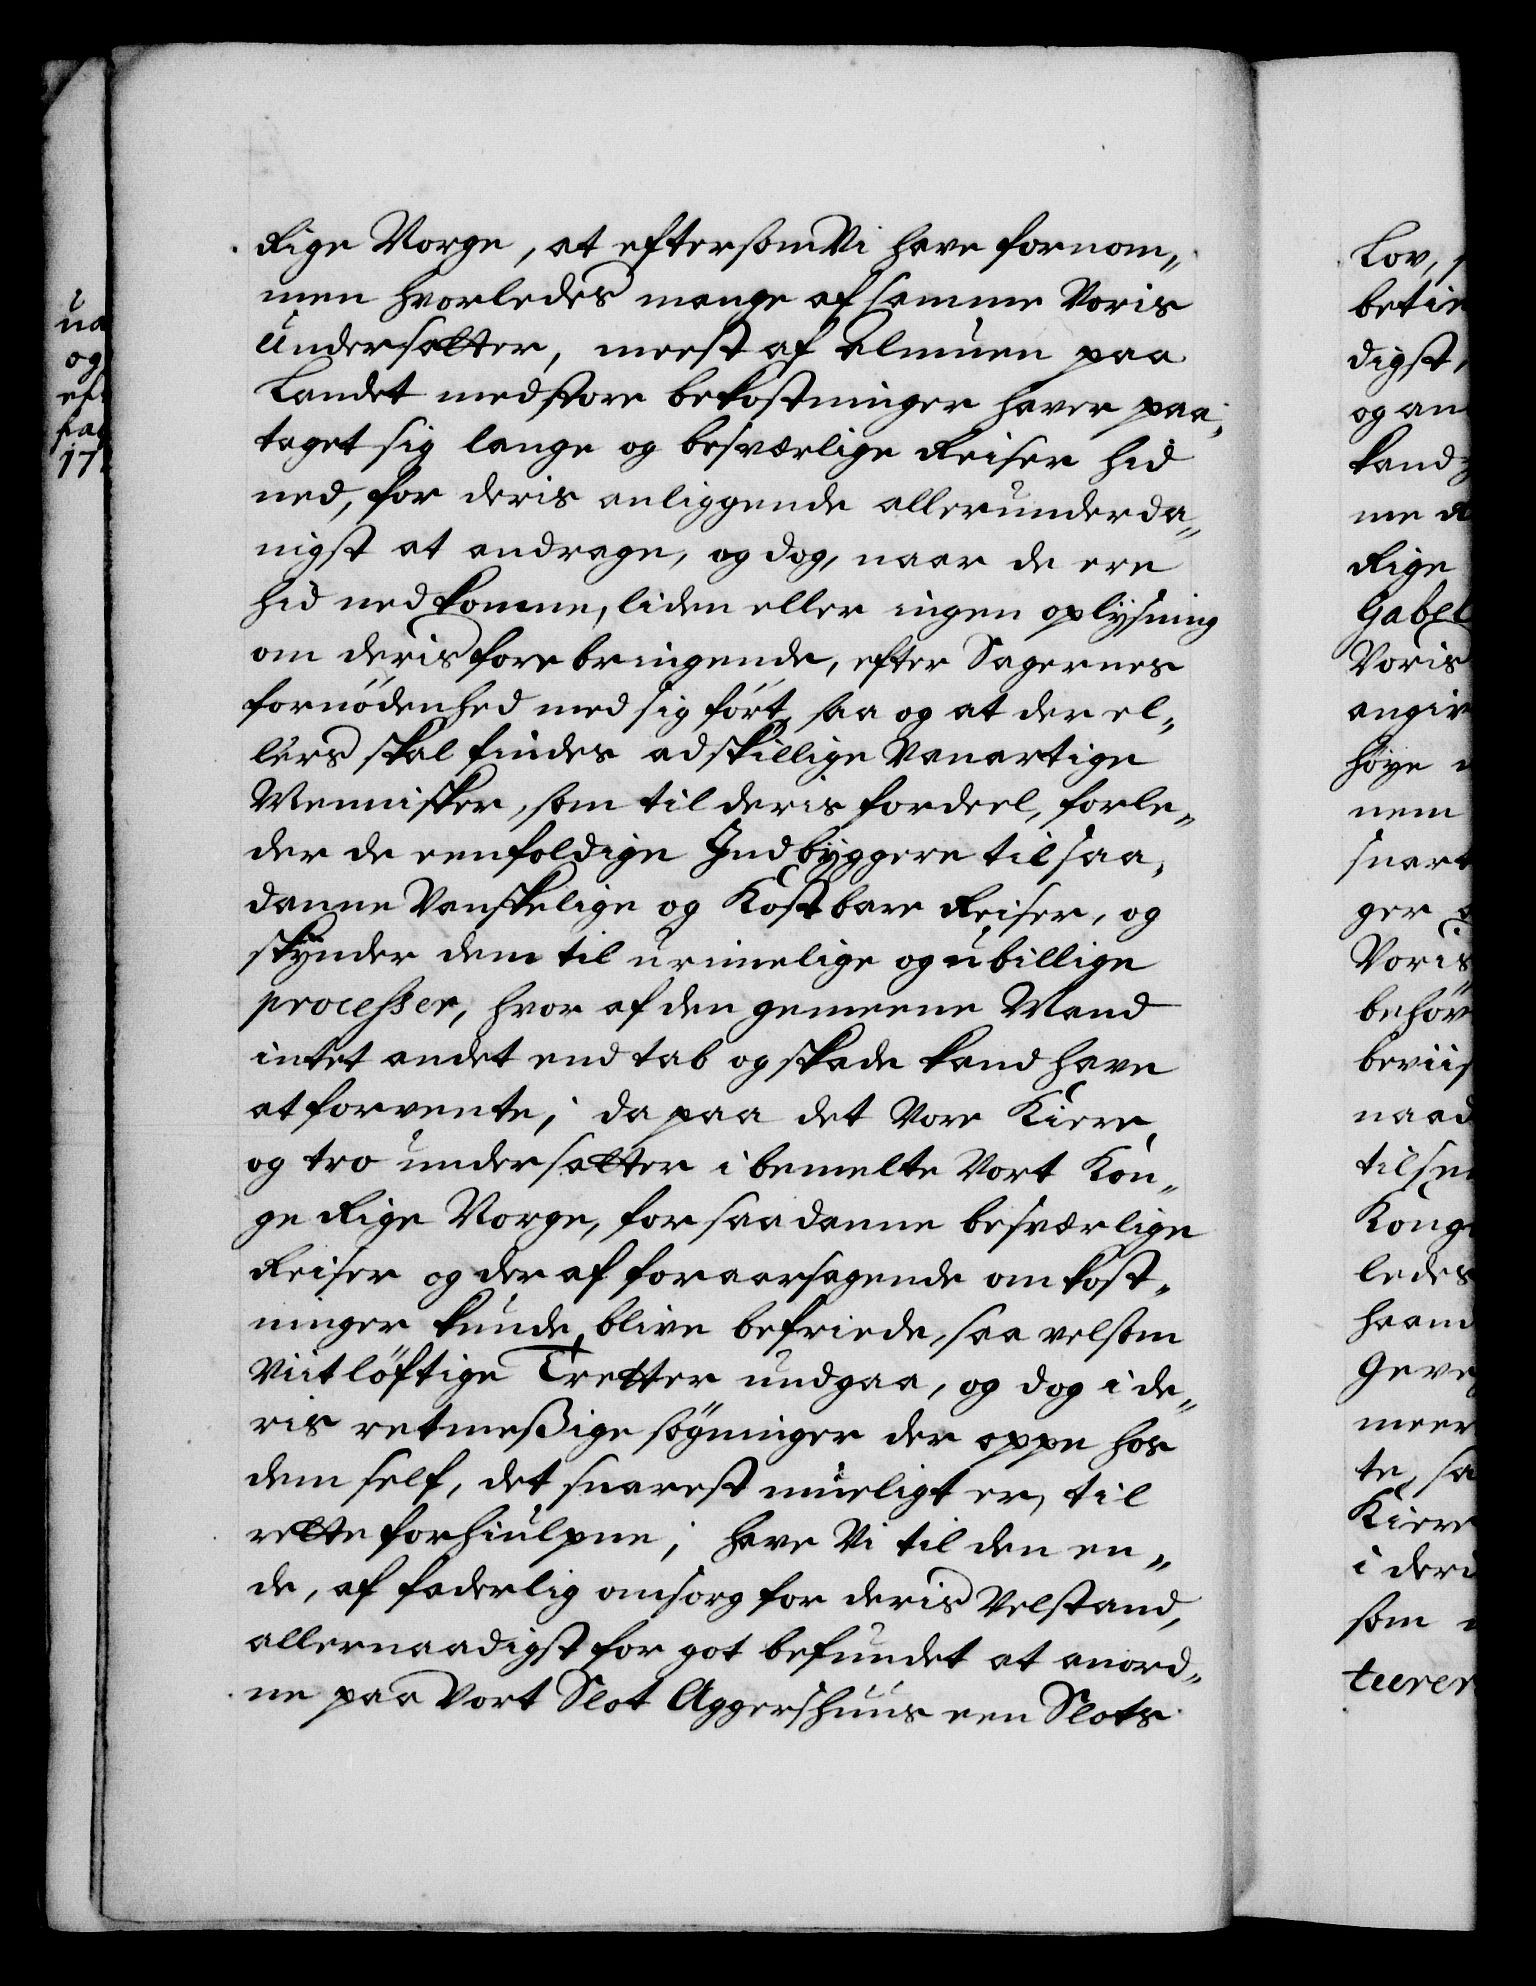 Rige Norge, at eftersom Vi have fornom„
men hvorledes mange af samme Voris
Undersatter, meest af Almuen paa
Landet med store bekostninger haver paa„
taget sig lange og besværlige Reiser hid
ned, for deris anliggende allerunderda„
nigst at andrage, og dog, naar de ere
hid ned komne, liden eller ingen oplysning
om deris forebringende, efter Sagernes
fornödenhed med sig fört, saa og at der el„
lers skal findes adskillige Vanartige
Mennisker, som til deris fordeel, forle„
der de eenfoldige Indbyggere til saa„
danne Vanskelige og Kostbare Reiser, og
skynder dem til urimelige og ubillige
processer, hvor af den gemeene Mand
intet andet end tab og skade kand have
at forvente; da paa det Vore Kiere
og tro undersatter i bemelte Vort Kon„
ge Rige Norge, for saadanne besværlige
Reiser og der af foraarsagende omkost„
ninger kunde blive befriede, saa velsom
Viitlöftige Tretter undgaa, og dog i de„
ris retmeßige sögninger der oppe hos
dem self, det snarest mueligt er, til
rette forhiulpne; have Vi til den en„
de, af faderlig omsorg for deris Velstand,
allernaadigst for got befundet at anord„
ne paa Vort Slot Aggershuus een Slots
ua
og
17
Lov,
betie
digst,
og an
kand
me
Rige
Gabel
Voris
angiv
höye
nem
snart
ger
Voris
behöv
beviis
naad
tilsen
Konge
ledes
haand
meer
te, sa
Kiere
i deri
som
turer